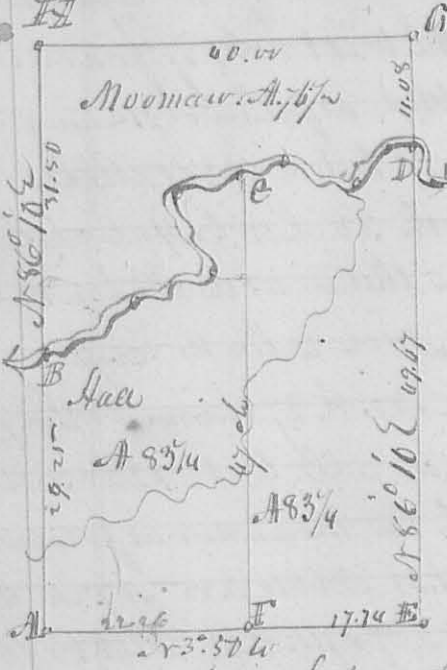 H
40.00
Moomaw. A. 76½
11.08
N 86° 10' E
31.50
C
D
B
Hall
A 83¼
29.25
47 ch
A 83¼
N 86° 10' E
49.67
A
22.26
F
17.74
E
N 3° 50 W